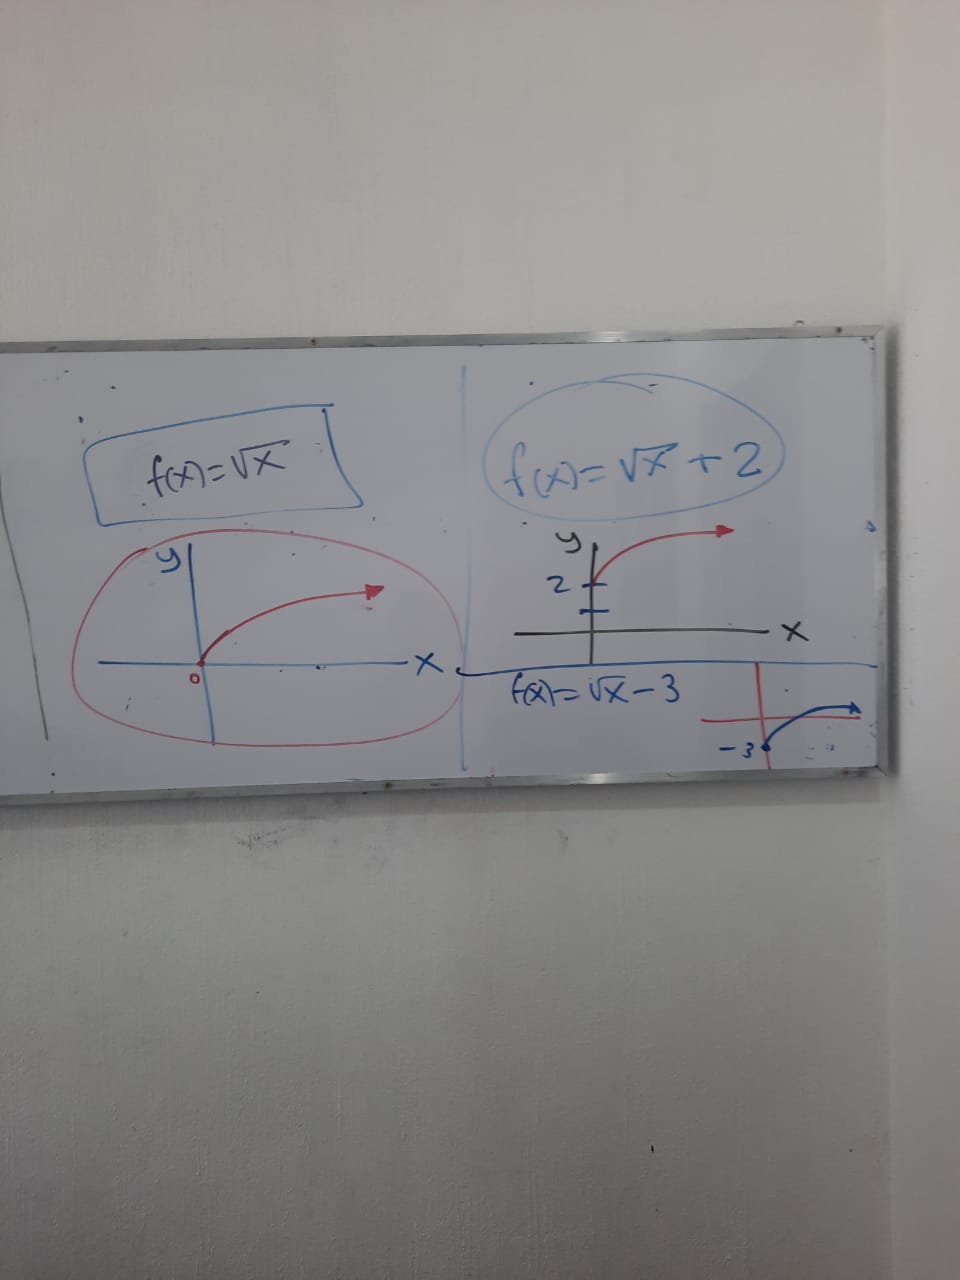 f(x)=√x
y
x
0
f(x)=√x+2
y
2
x
f(x)=√x-3
-3